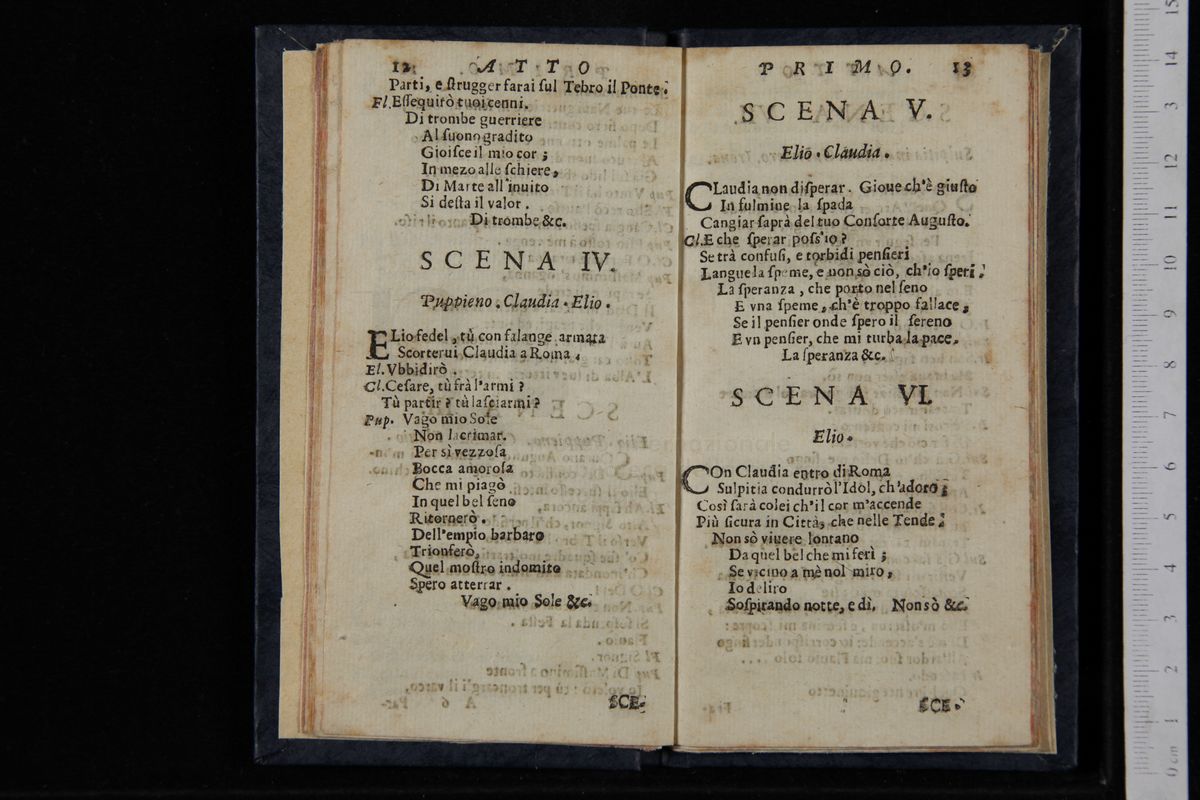 12 ATTO
Parti, e ſtrugger farai ſul Tebro il Ponte.
Fl. Eſſequirò tuoi cenni.
Di trombe guerriere
Al ſuono gradito
Gioiſce il mio cor ;
In mezo alle ſchiere,
Di Marte all'inuito
Si deſta il valor.
Di trombe &c.
SCENA IV.
Puppieno. Claudia. Elio.
ELio fedel, tù con falange armata
Scorterui Claudia a Roma.
El. Vbbidirò.
Cl. Ceſare, tù frà l'armi ?
Tù partir ? tù laſciarmi ?
Pup. Vago mio Sole
Non lacrimar.
Per sì vezzoſa
Bocca amoroſa
Che mi piagò
In quel bel ſeno
Ritornerò.
Dell'empio barbaro
Trionferò,
Quel moſtro indomito
Spero atterrar.
Vago mio Sole &c.
SCE-
PRIMO. 13
SCENA V.
Elio. Claudia.
CLaudia non diſperar. Gioue ch'è giuſto
In fulmine la ſpada
Cangiar ſaprà del tuo Conſorte Auguſto.
Cl. E che ſperar poſs'io ?
Se trà confuſi, e torbidi penſieri
Langue la ſpeme, e non sò ciò, ch'io ſperi.
La ſperanza, che porto nel ſeno
E vna ſpeme, ch'è troppo fallace,
Se il penſier onde ſpero il ſereno
E vn penſier, che mi turba la pace.
La ſperanza &c.
SCENA VI.
Elio.
COn Claudia entro di Roma
Sulpitia condurrò l'Idol, ch'adoro ;
Così ſarà colei ch'il cor m'accende
Più ſicura in Città, che nelle Tende.
Non sò viuere lontano
Da quel bel che mi ferì ;
Se vicino a mè nol miro,
Io deliro
Soſpirando notte, e dì. Non sò &c.
SCE-